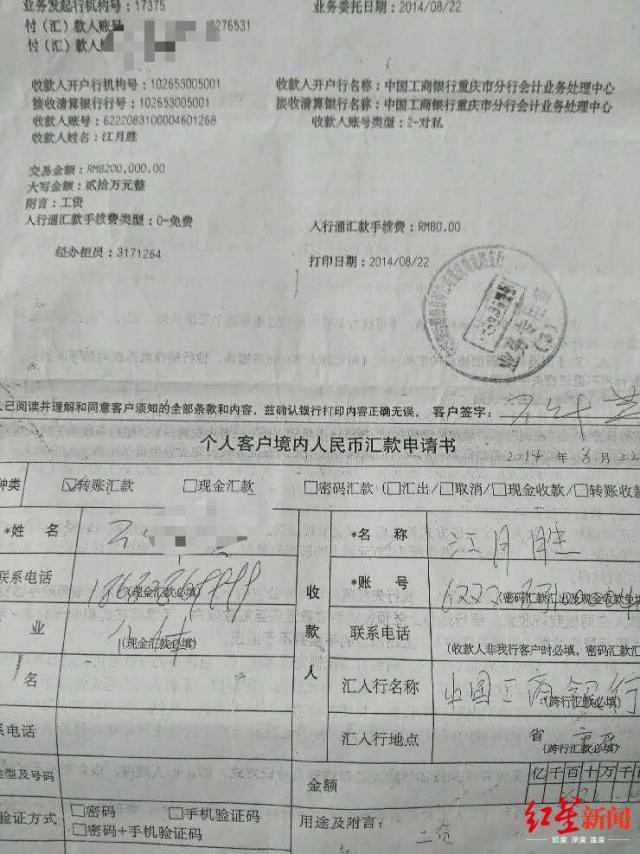 业务发起行机构号：17375 业务委托日期：2014/08/22
付（汇）款人账号 8276531
付（汇）款人
收款人开户行机构号：102653005001 收款人开户行名称：中国工商银行重庆市分行会计业务处理中心
接收清算银行行号：102653005001 接收清算银行名称：中国工商银行重庆市分行会计业务处理中心
收款人账号：6222083100004601268 收款人账号类型：2-对私
收款人姓名：江月胜
交易金额：RMB200,000.00
大写金额：贰拾万元整
附言：工资
人行通汇款手续费类型：0-免费 人行通汇款手续费：RMB0.00
经办柜员：3171264 打印日期：2014/08/22
人已阅读并理解和同意客户须知的全部条款和内容，兹确认银行打印内容正确无误。 客户签字：
个人客户境内人民币汇款申请书
2014 年 8 月 22
种类 ☑转账汇款 □现金汇款 □密码汇款（□汇出/□取消/□现金收款/□转账收款
*姓 名 *名 称 江月胜
联系电话 (现金汇款必填) *账 号 6222 (密码汇款汇出及现金收款免填
业 (现金汇款必填) 收款人 联系电话 (收款人非我行客户时必填，密码汇款汇
名 汇入行名称 中国工商银行 (跨行汇款必填)
系电话 汇入行地点 省 重庆 (跨行汇款必填)
类型及号码 金额 亿千百十万千
验证方式 □密码 □手机验证码
□密码+手机验证码 用途及附言： 工资
红星新闻
锐度 深度 温度